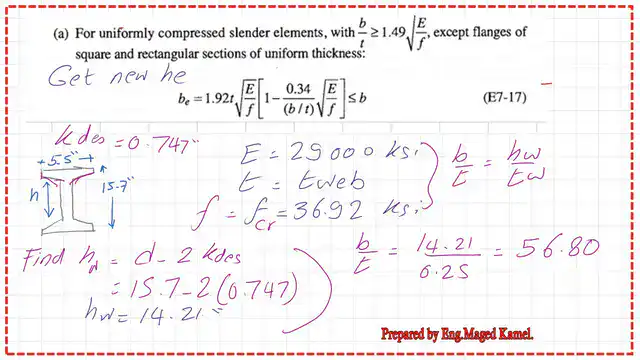 (a) For uniformly compressed slender elements, with b/t ≥ 1.49√(E/f), except flanges of
square and rectangular sections of uniform thickness:
Get new he
be = 1.92t√(E/f)[1 − 0.34/(b/t) √(E/f)] ≤ b (E7-17)
kdes = 0.747"
5.5"
15.7"
h
E = 29000 ksi
t = tweb
f = fcr = 36.92 ksi
b/t = hw/tw
Find hw = d − 2 kdes
= 15.7 − 2 (0.747)
hw = 14.21"
b/t = 14.21/0.25 = 56.80
Prepared by Eng.Maged Kamel.